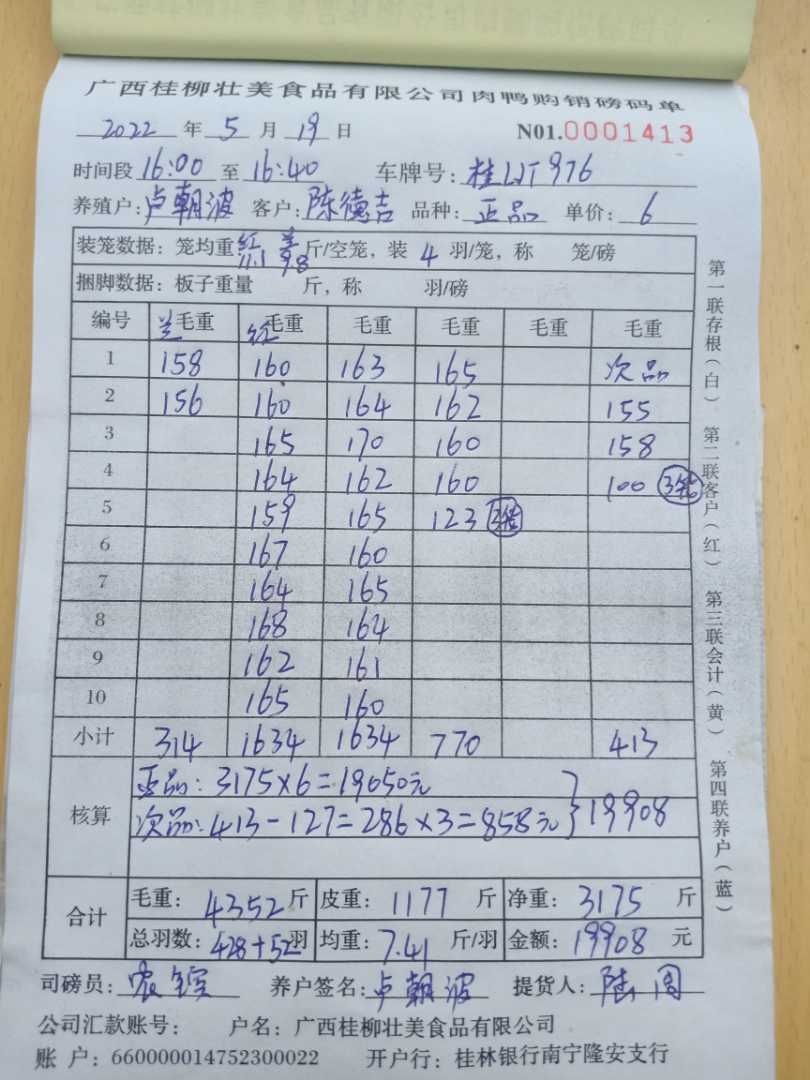 广西桂柳壮美食品有限公司肉鸭购销磅码单
2022 年 5 月 19 日 N01.0001413
时间段 16:00 至 16:40 车牌号: 桂
养殖户: 卢朝波 客户: 陈德吉 品种: 正品 单价: 6
装笼数据: 笼均重 红 兰 11.1 9.8 斤/空笼, 装 4 羽/笼, 称 笼/磅
捆脚数据: 板子重量 斤, 称 羽/磅
编号 兰毛重 红毛重 毛重 毛重 毛重 毛重
1 158 160 163 165 次品
2 156 160 164 162 155
3 165 170 160 158
4 164 162 160 100 3笼
5 159 165 123 3笼
6 167 160
7 164 165
8 168 164
9 162 161
10 165 160
小计 314 1634 1634 770 413
核算
正品: 3175×6=19050元
次品: 413-127=286×3=858元 } 19908
合计
毛重: 4352 斤 皮重: 1177 斤 净重: 3175 斤
总羽数: 428+52 羽 均重: 7.41 斤/羽 金额: 19908 元
司磅员: 养户签名: 卢朝波 提货人: 陆周
公司汇款账号: 户名: 广西桂柳壮美食品有限公司
账 户: 660000014752300022 开户行: 桂林银行南宁隆安支行
第一联存根(白) 第二联客户(红) 第三联会计(黄) 第四联养户(蓝)